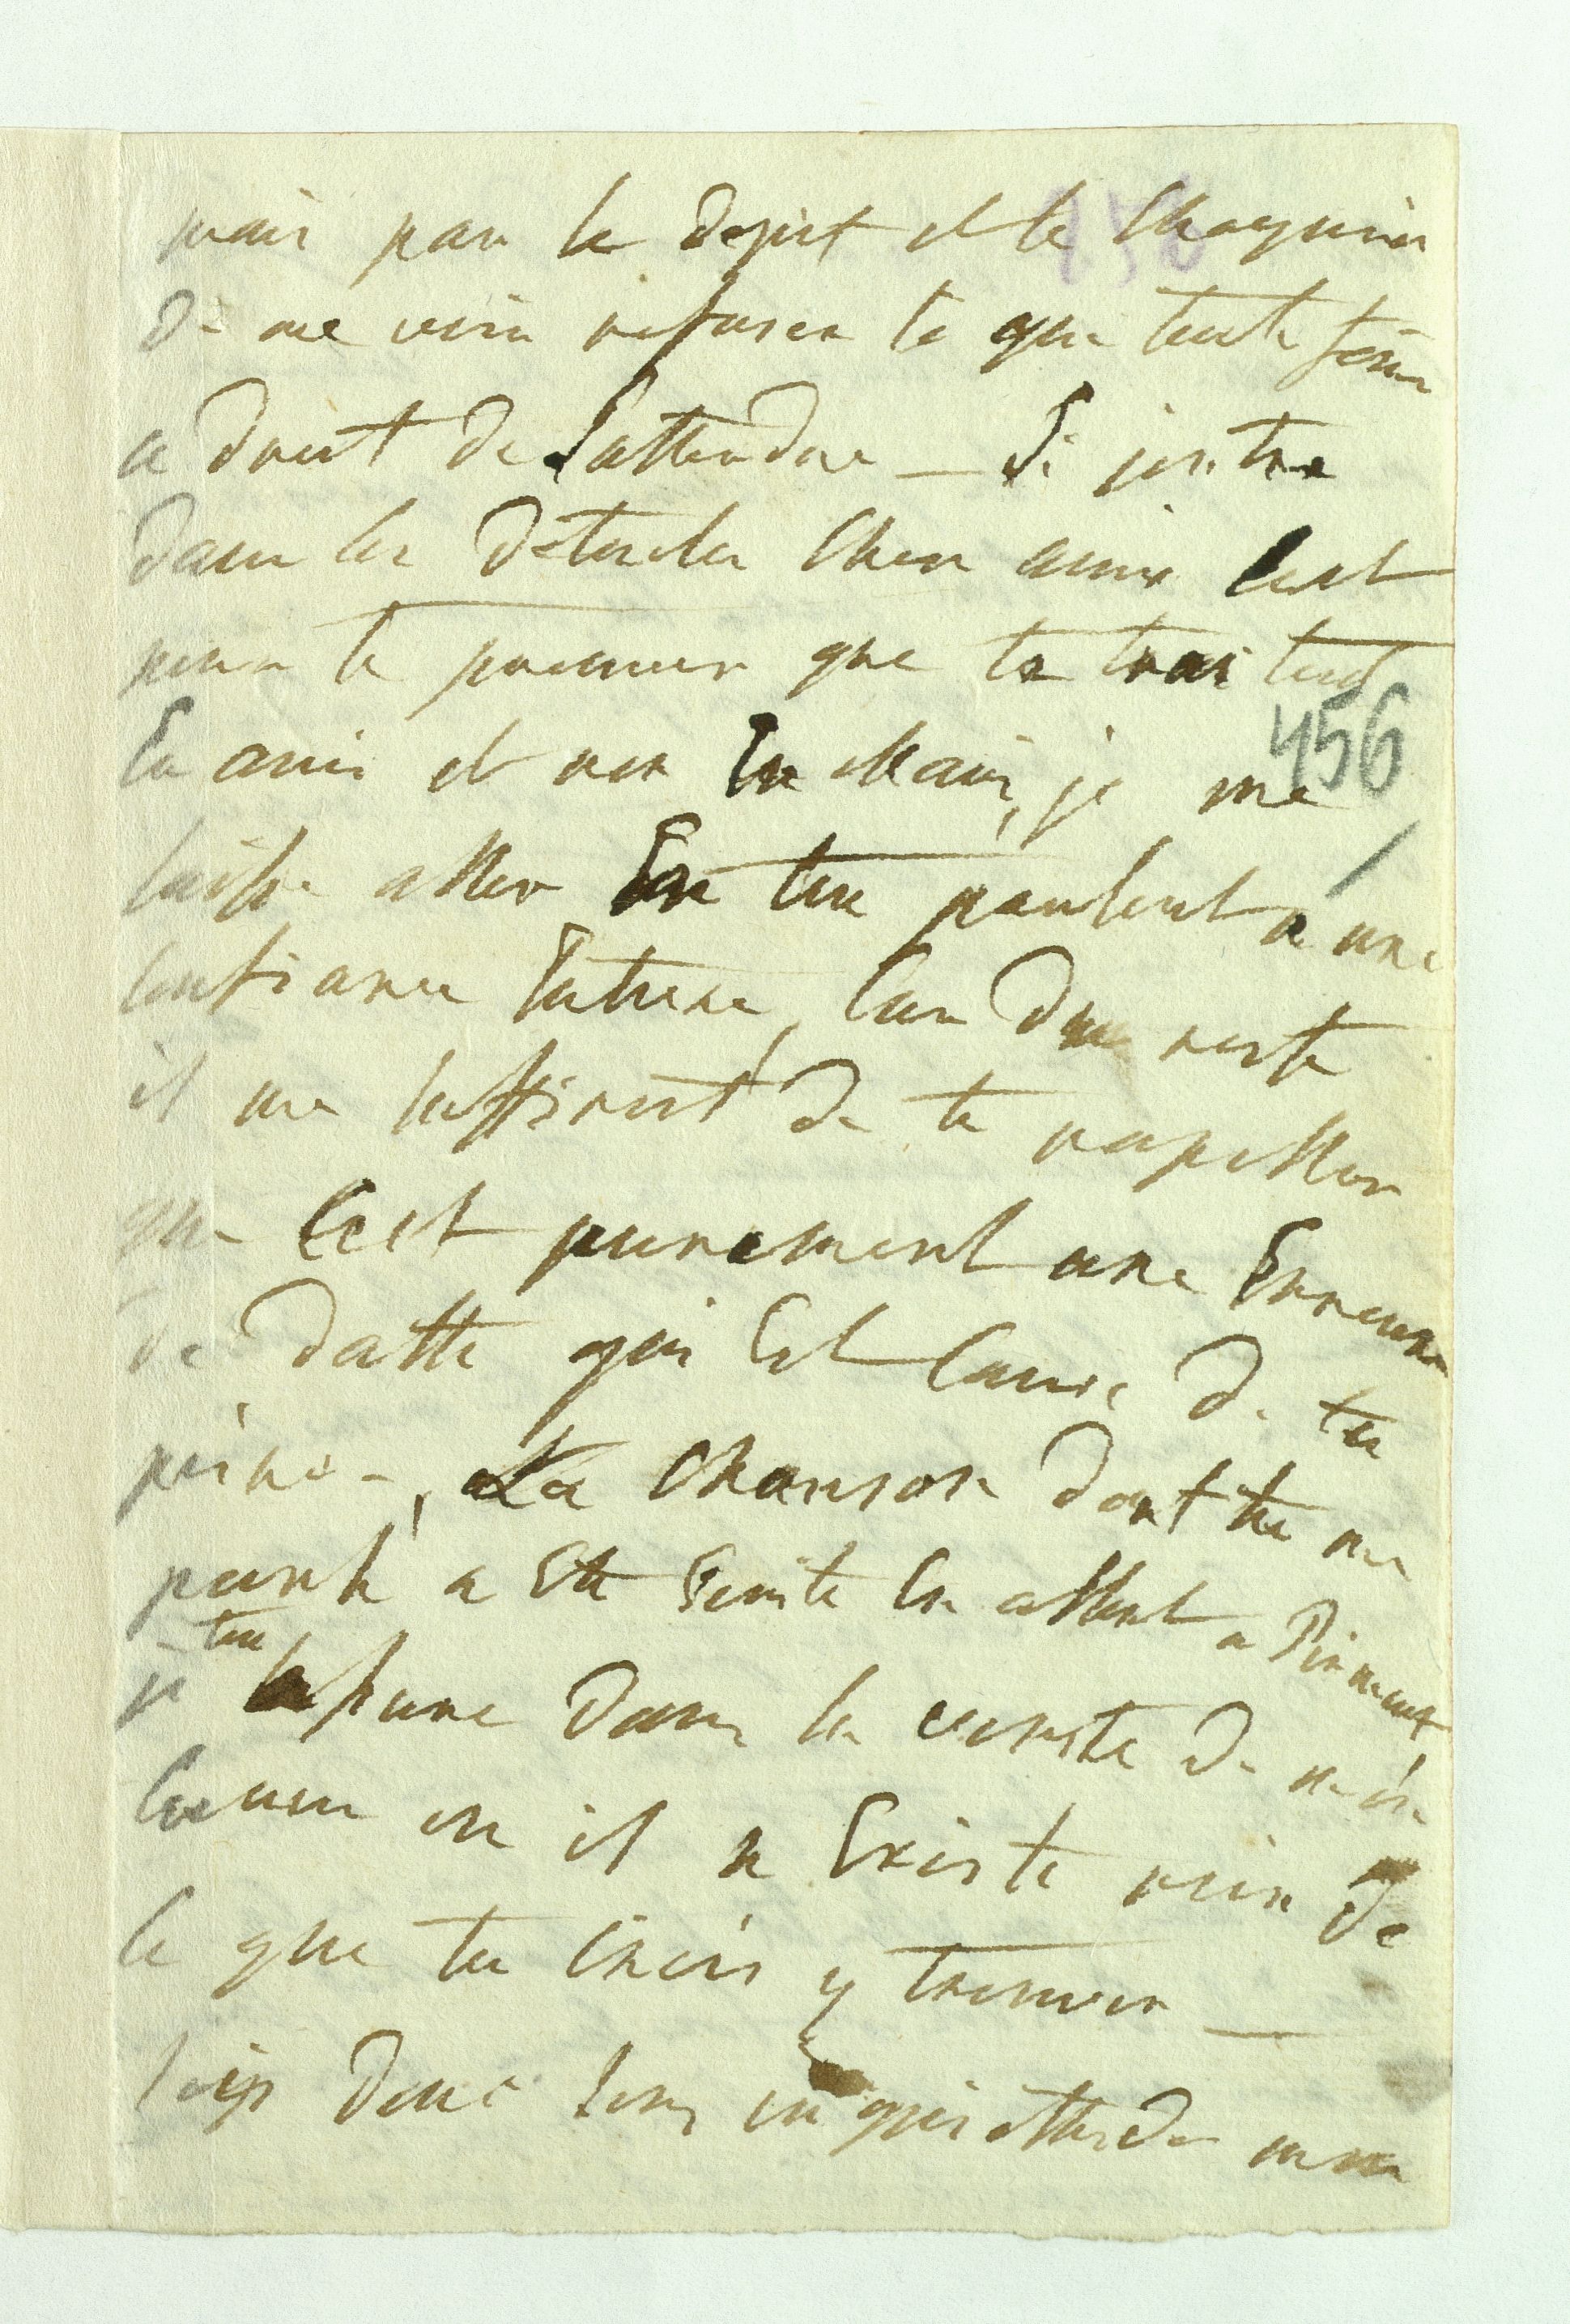 mais par le depit et le chagrin
de me voir refuser ce que toute feme
a droit de sattendre — Si jentre
dans ces détails cher ami cest
pour te prouver que te traitant
En ami et non En Mari, je me
laisse aller En te parlant a une
confiance Entiere, car du reste
il me suffirait de te rapeller
que Cest purement une Erreur
de datte qui Est Cause de ta
peine, La Chanson dont tu me
parle a Ete Ecrite En allant a
je te lassure dans la verite de mon
Coeur on il n Existe rien de
ce que tu Crois y trouver —
sois donc sans inquiettude mon
456